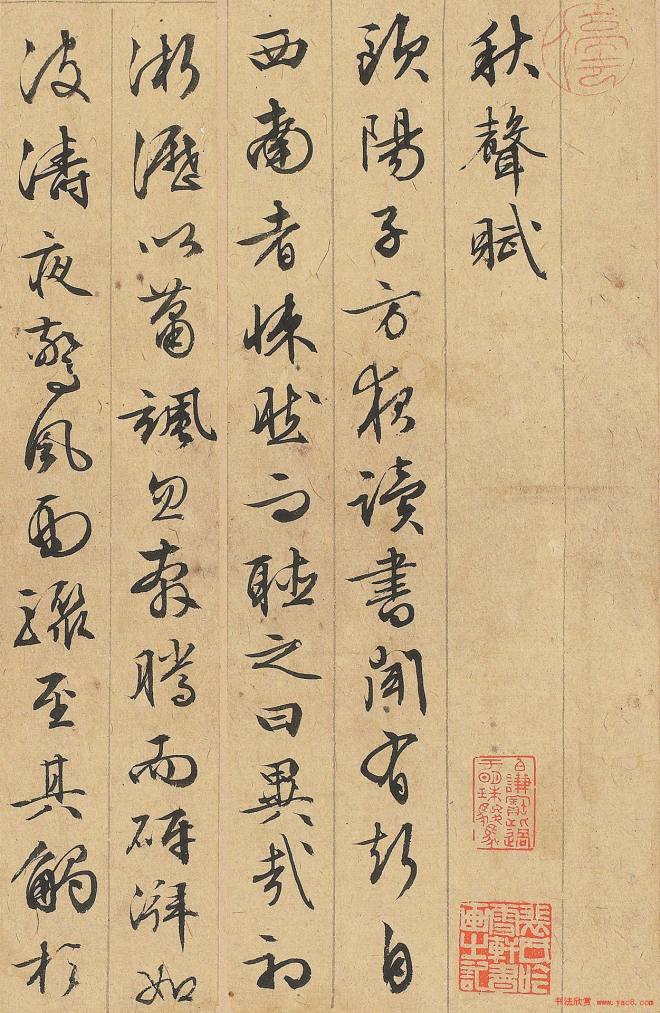 秋聲賦
歐陽子方夜讀書聞有聲自
西南者悚然而聽之曰異哉初
淅瀝以蕭颯忽奔騰而砰湃如
波濤夜驚風雨驟至其觸於
书法欣赏 www.yac8.com